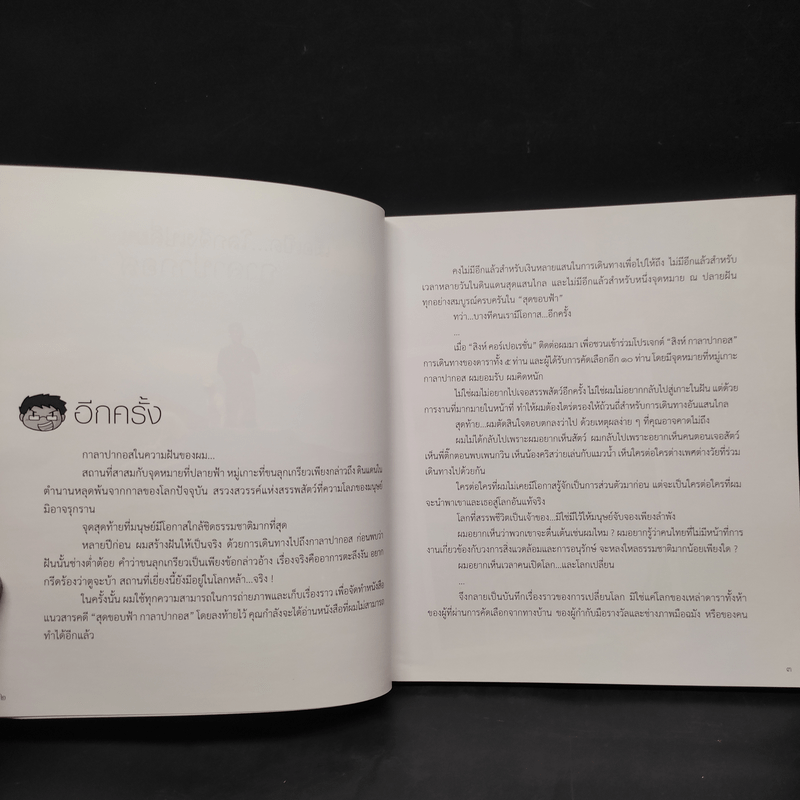 อีกครั้ง
กาลาปากอสในความฝันของผม...
สถานที่สาสมกับจุดหมายที่ปลายฟ้า หมู่เกาะที่ขนลุกเกรียวเพียงกล่าวถึง ดินแดนใน
ตำนานหลุดพ้นจากกาลของโลกปัจจุบัน สรวงสวรรค์แห่งสรรพสัตว์ที่ความโลภของมนุษย์
มิอาจรุกราน
จุดสุดท้ายที่มนุษย์มีโอกาสใกล้ชิดธรรมชาติมากที่สุด
หลายปีก่อน ผมสร้างฝันให้เป็นจริง ด้วยการเดินทางไปถึงกาลาปากอส ก่อนพบว่า
ฝันนั้นช่างต่ำต้อย คำว่าขนลุกเกรียวเป็นเพียงข้อกล่าวอ้าง เรื่องจริงคืออาการตะลึงงัน อยาก
กรีดร้องว่าดูจะบ้า สถานที่เยี่ยงนี้ยังมีอยู่ในโลกหล้า...จริง !
ในครั้งนั้น ผมใช้ทุกความสามารถในการถ่ายภาพและเก็บเรื่องราว เพื่อจัดทำหนังสือ
แนวสารคดี “สุดขอบฟ้า กาลาปากอส” โดยลงท้ายไว้ คุณกำลังจะได้อ่านหนังสือที่ผมไม่สามารถ
ทำได้อีกแล้ว
๒
คงไม่มีอีกแล้วสำหรับเงินหลายแสนในการเดินทางเพื่อไปให้ถึง ไม่มีอีกแล้วสำหรับ
เวลาหลายวันในดินแดนสุดแสนไกล และไม่มีอีกแล้วสำหรับหนึ่งจุดหมาย ณ ปลายฝัน
ทุกอย่างสมบูรณ์ครบครันใน “สุดขอบฟ้า”
ทว่า...บางทีคนเรามีโอกาส...อีกครั้ง
...
เมื่อ “สิงห์ คอร์เปอเรชั่น” ติดต่อผมมา เพื่อชวนเข้าร่วมโปรเจกต์ “สิงห์ กาลาปากอส”
การเดินทางของดาราทั้ง ๕ ท่าน และผู้ได้รับการคัดเลือกอีก ๑๐ ท่าน โดยมีจุดหมายที่หมู่เกาะ
กาลาปากอส ผมยอมรับ ผมคิดหนัก
ไม่ใช่ผมไม่อยากไปเจอสรรพสัตว์อีกครั้ง ไม่ใช่ผมไม่อยากกลับไปสู่เกาะในฝัน แต่ด้วย
การงานที่มากมายในหน้าที่ ทำให้ผมต้องไตร่ตรองให้ถ้วนถี่สำหรับการเดินทางอันแสนไกล
สุดท้าย...ผมตัดสินใจตอบตกลงว่าไป ด้วยเหตุผลง่าย ๆ ที่คุณอาจคาดไม่ถึง
ผมไม่ได้กลับไปเพราะผมอยากเห็นสัตว์ ผมกลับไปเพราะอยากเห็นคนตอนเจอสัตว์
เห็นพี่ติ๊กตอนพบเพนกวิน เห็นน้องคริสว่ายเล่นกับแมวน้ำ เห็นใครต่อใครต่างเพศต่างวัยที่ร่วม
เดินทางไปด้วยกัน
ใครต่อใครที่ผมไม่เคยมีโอกาสรู้จักเป็นการส่วนตัวมาก่อน แต่จะเป็นใครต่อใครที่ผม
จะนำพาเขาและเธอสู่โลกอันแท้จริง
โลกที่สรรพชีวิตเป็นเจ้าของ...มิใช่มีไว้ให้มนุษย์จับจองเพียงลำพัง
ผมอยากเห็นว่าพวกเขาจะตื่นเต้นเช่นผมไหม ? ผมอยากรู้ว่าคนไทยที่ไม่มีหน้าที่การ
งานเกี่ยวข้องกับวงการสิ่งแวดล้อมและการอนุรักษ์ จะหลงใหลธรรมชาติมากน้อยเพียงใด ?
ผมอยากเห็นเวลาคนเปิดโลก...และโลกเปลี่ยน
...
จึงกลายเป็นบันทึกเรื่องราวของการเปลี่ยนโลก มิใช่แค่โลกของเหล่าดาราทั้งห้า
ของผู้ที่ผ่านการคัดเลือกจากทางบ้าน ของผู้กำกับมือรางวัลและช่างภาพมือฉมัง หรือของคน
๓